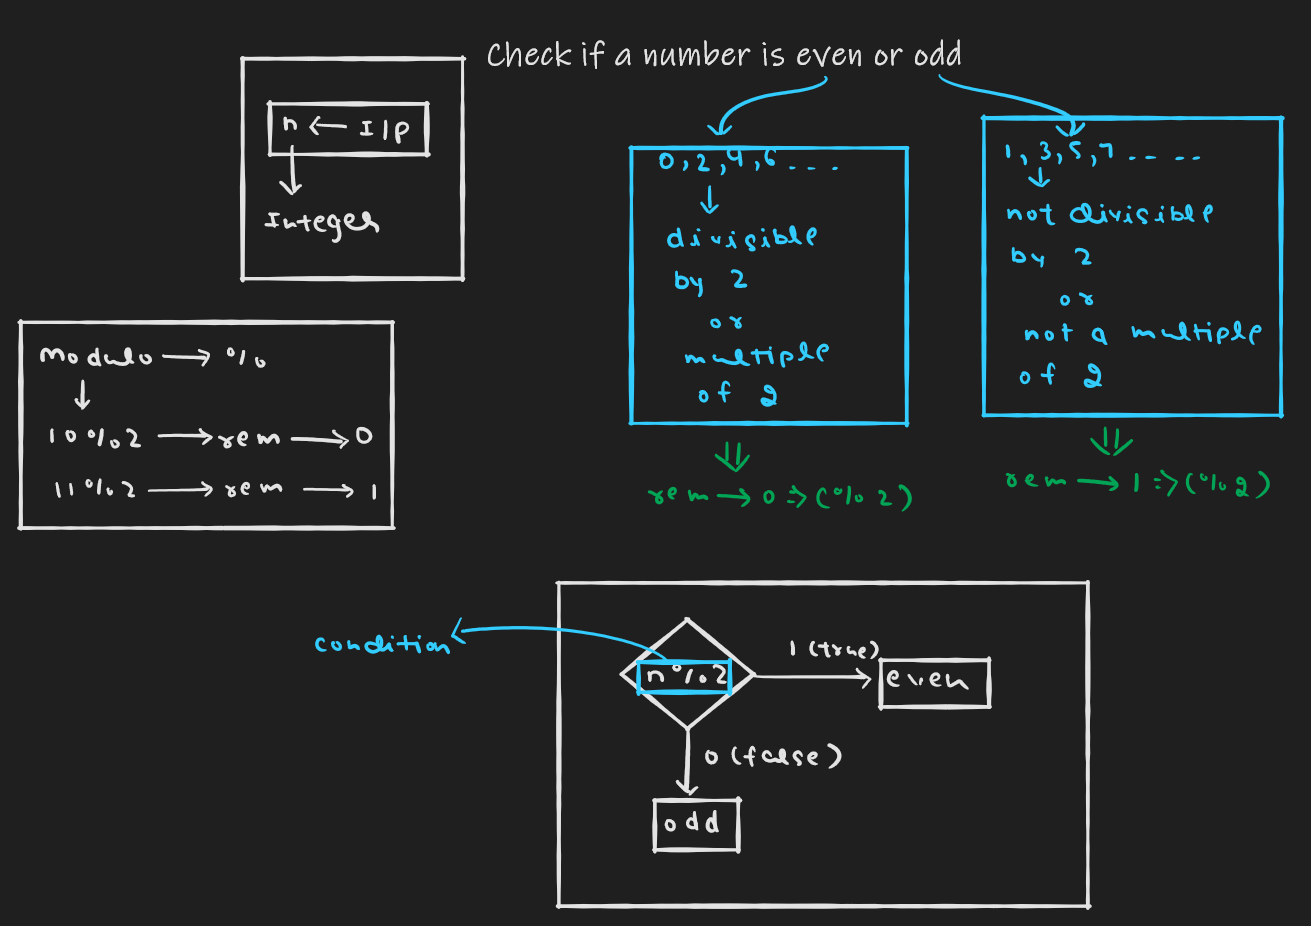 Check if a number is even or odd
n ← I/P
Integer
0, 2, 4, 6 - - -
divisible
by 2
or
multiple
of 2
rem → 0 => (% 2)
1, 3, 5, 7 - - - -
not divisible
by 2
or
not a multiple
of 2
rem → 1 => (% 2)
modulo → %
10 % 2 → rem → 0
11 % 2 → rem → 1
condition
n % 2
1 (true)
even
0 (false)
odd